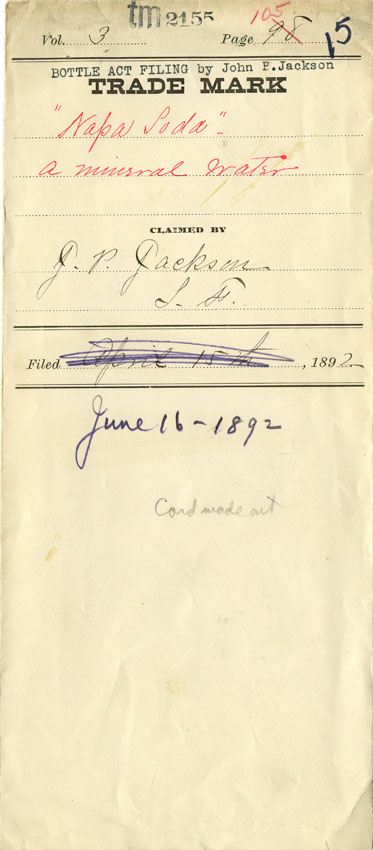 tm 2155
105
Vol. 3 Page 98 15
BOTTLE ACT FILING by John P.Jackson
TRADE MARK
"Napa Soda"-
a mineral water
CLAIMED BY
J. P. Jackson
S. F.
Filed April 15th, 1892
June 16-1892
Card made out